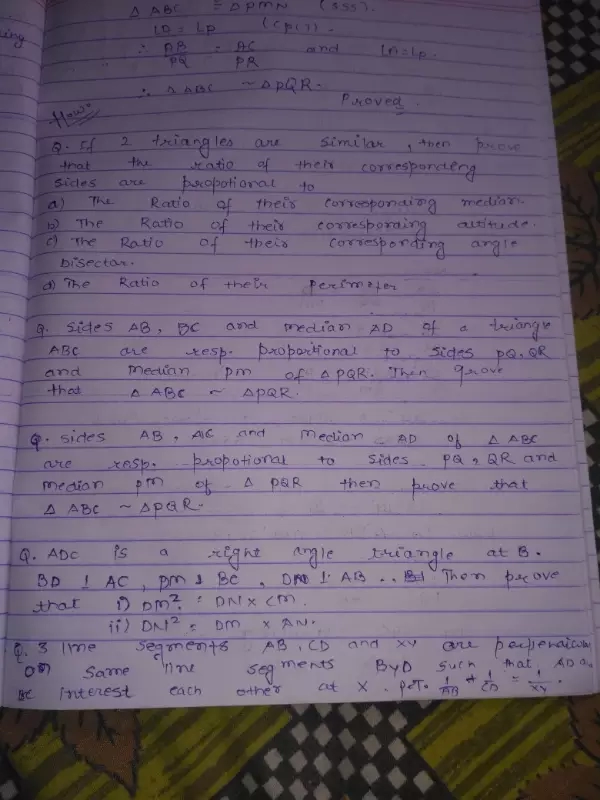 Δ ABC ≅ ΔPMN (SSS).
∠A = ∠P (CPCT).
∴ AB/PQ = AC/PR and ∠A=∠P.
∴ Δ ABC ~ ΔPQR.
Proved.
Q. If 2 triangles are similar, then prove
that the ratio of their corresponding
sides are propotional to
a) The Ratio of their corresponding median.
b) The Ratio of their corresponding altitude.
c) The Ratio of their corresponding angle
Bisector.
d) The Ratio of their perimeter
Q. Sides AB, BC and median AD of a triangle
ABC are resp. proportional to sides PQ, QR
and median PM of ΔPQR. Then prove
that Δ ABC ~ ΔPQR.
Q. Sides AB, AC and median AD of Δ ABC
are resp. propotional to sides PQ, QR and
median PM of Δ PQR then prove that
Δ ABC ~ ΔPQR.
Q. ADC is a right angle triangle at B.
BD ⊥ AC, DM ⊥ BC, DN ⊥ AB. Then prove
that i) DM² = DN × CM.
ii) DN² = DM × AN.
Q. 3 line segments AB, CD and XY are perpendicular
on same line segments BYD such that AD &
BC interest each other at X. P.T. 1/AB + 1/CD = 1/XY.